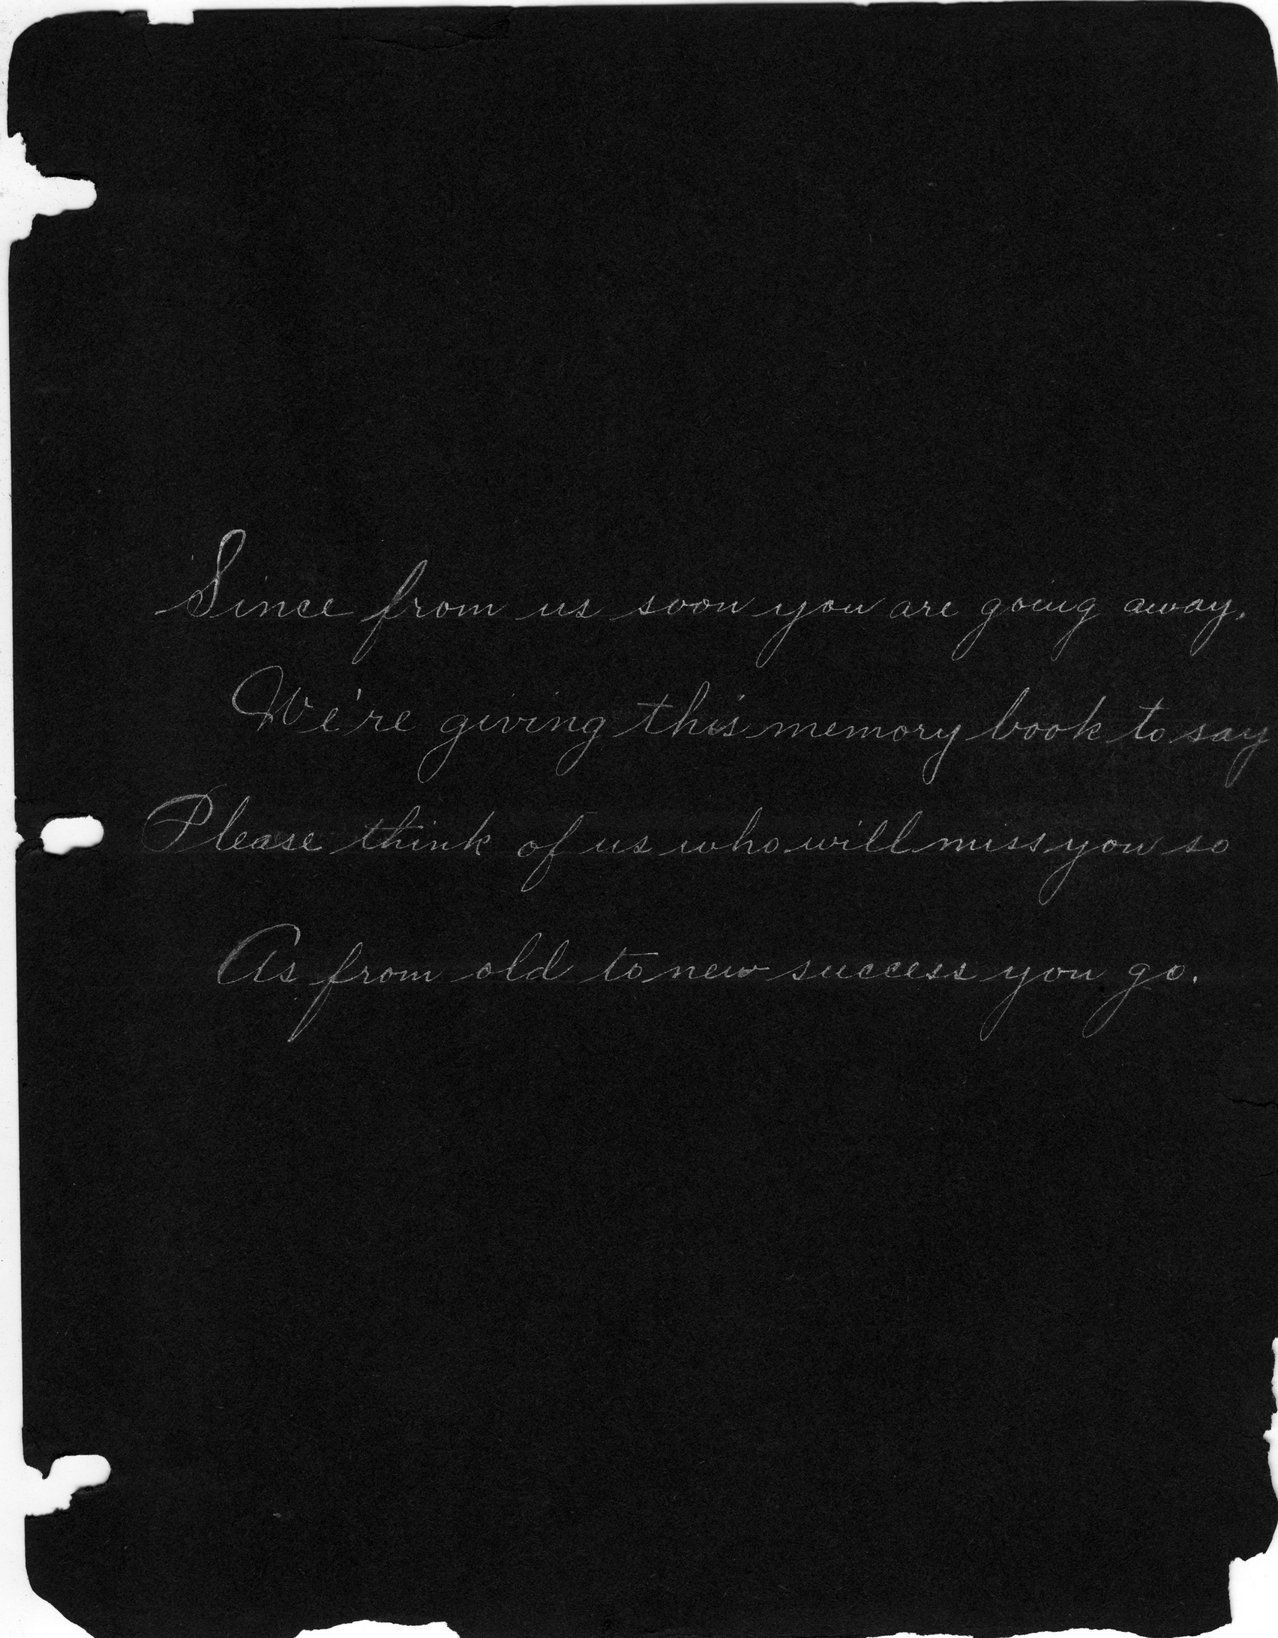 Since from us soon you are going away,
We're giving this memory book to say
Please think of us who will miss you so
As from old to new success you go.